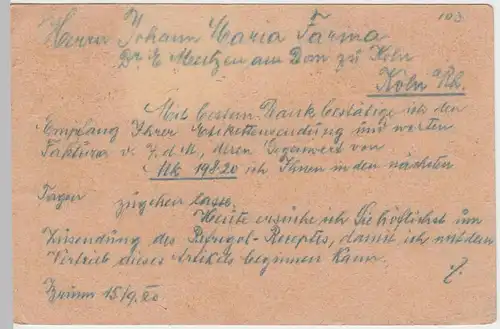 Herrn Johann Maria Farina
Dr. E Meutzen am Dom zu Köln
Köln a/Rh.
Mit bestem Dank bestätige ich den
Empfang Ihrer Etikettensendung und werten
Faktura v. 7. d. M., deren Gegenwert von
Mk 198·20 ich Ihnen in den nächsten
Tagen zugehen lasse.
Heute ersuche ich Sie höflichst um
Zusendung des Refregol-Receptes, damit ich mit dem
Vertrieb dieses Artikels beginnen kann.
Brünn 15/9. 20